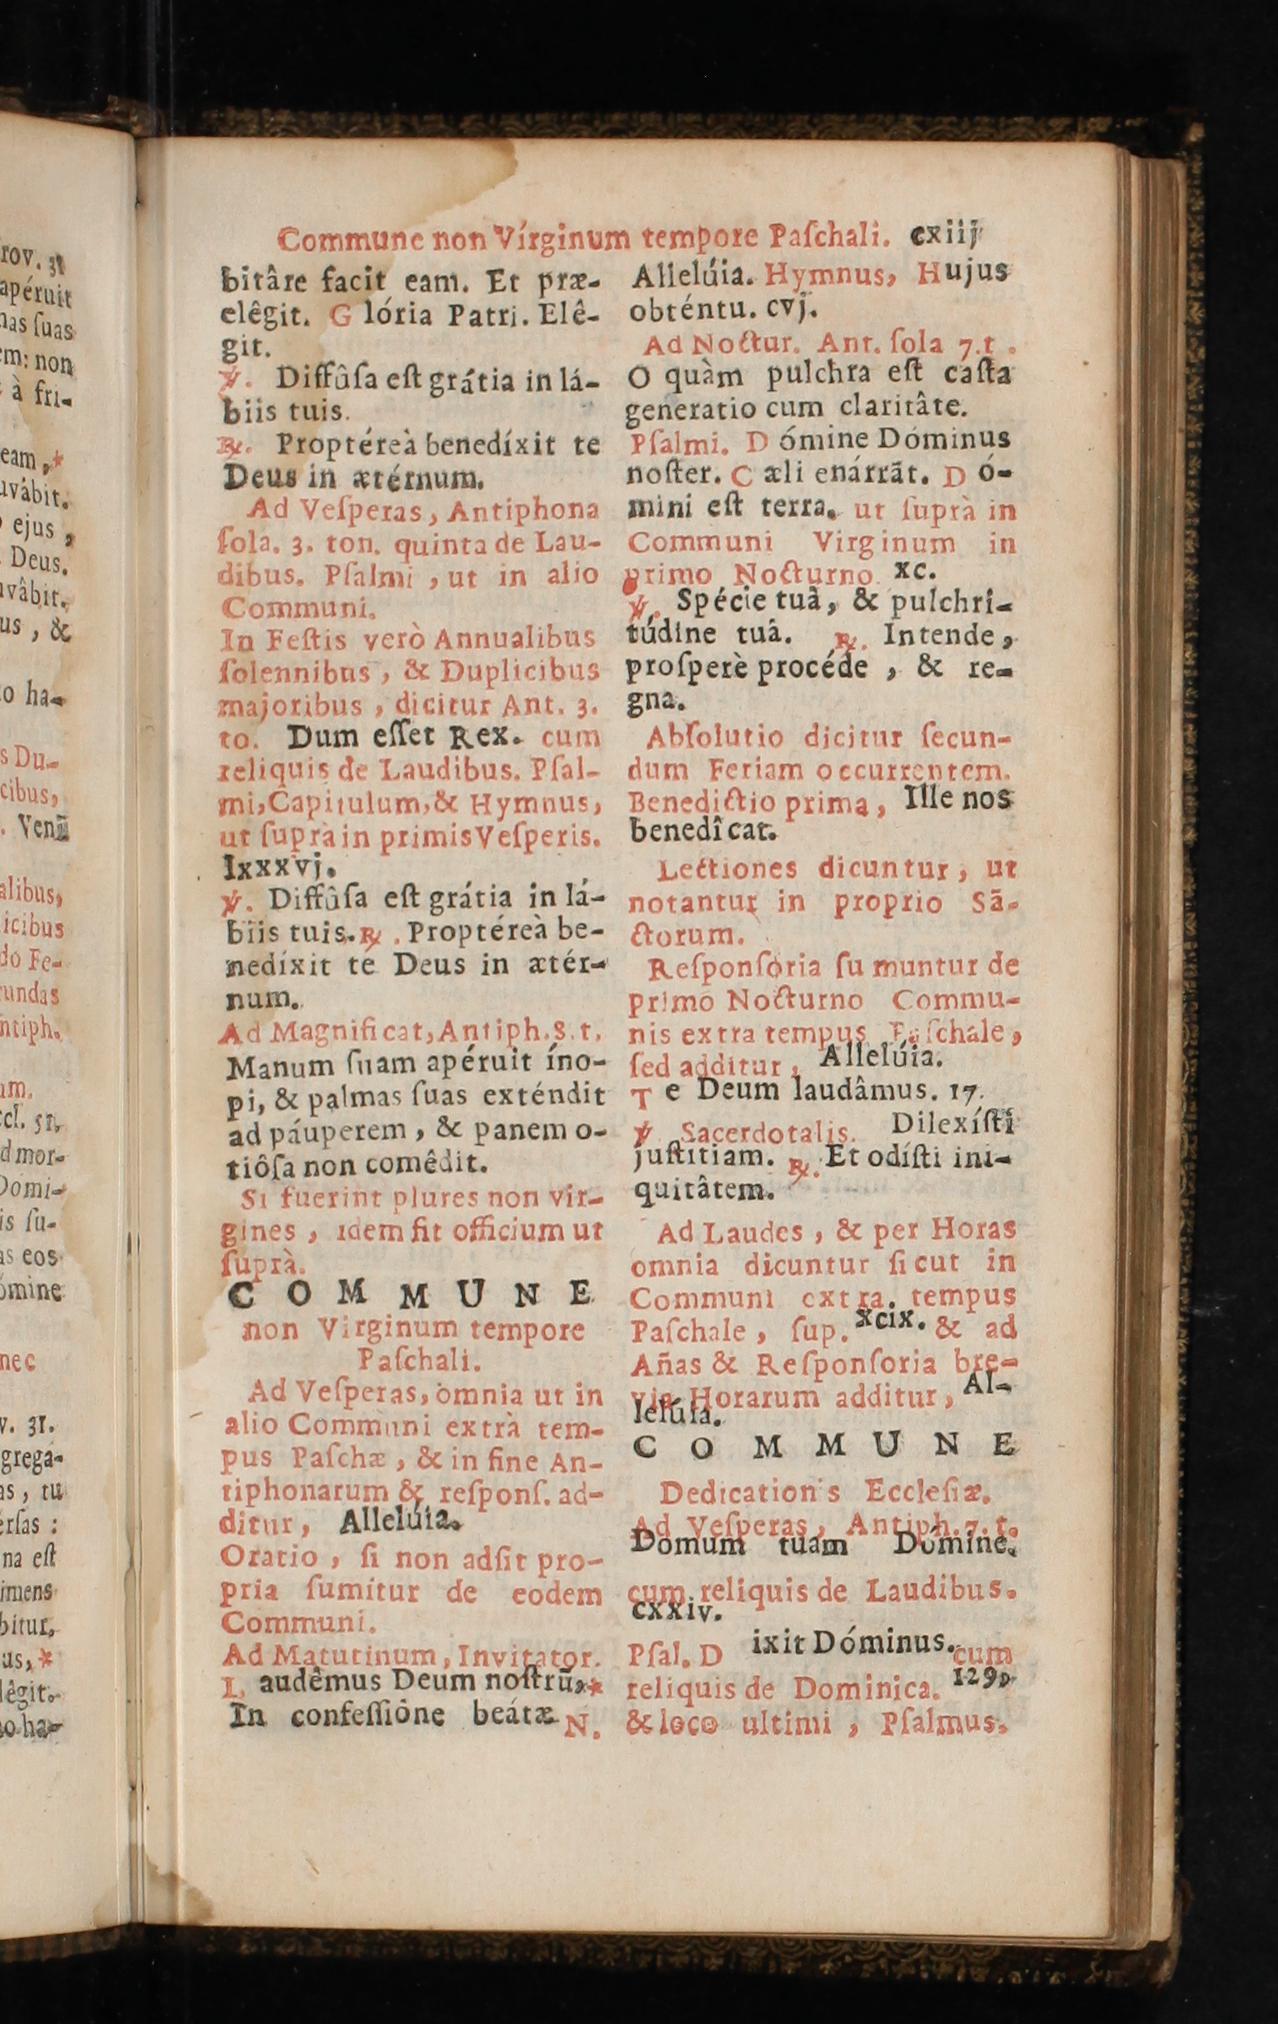 rov. 31
apéruit
nas ſuas
em: non
à fri-
eam, *
uvâbit.
ejus,
Deus.
uvâbit.
us, &
o ha-
s Du-
cibus,
. Veni
alibus,
icibus
do Fe-
undas
ntiph.
um.
ccl. 51.
d mor-
Domi-
is ſu-
as eos
ómine
nec
v. 31.
grega-
as, tu
erſas :
na eſt
imens
bitur,
us, *
lêgit.
o ha-
Commune non Vírginum tempore Paſchali. cxiij
bitâre facit eam. Et præ-
elêgit. Glória Patri. Elê-
git.
℣. Diffûſa eſt grátia in lá-
biis tuis.
℟. Proptéreà benedíxit te
Deus in ætérnum.
Ad Veſperas, Antiphona
ſola. 3. ton. quinta de Lau-
dibus. Pſalmi, ut in alio
Communi.
In Feſtis verò Annualibus
ſolennibus, & Duplicibus
majoribus, dicitur Ant. 3.
to. Dum eſſet Rex. cum
reliquis de Laudibus. Pſal-
mi, Capitulum, & Hymnus,
ut ſuprà in primis Veſperis.
lxxxvj.
℣. Diffûſa eſt grátia in lá-
biis tuis. ℟. Proptéreà be-
nedíxit te Deus in ætér-
num.
Ad Magnificat, Antiph. 8. t.
Manum ſuam apéruit íno-
pi, & palmas ſuas exténdit
ad páuperem, & panem o-
tiôſa non comêdit.
Si fuerint plures non vir-
gines, idem fit officium ut
ſuprà.
COMMUNE
non Virginum tempore
Paſchali.
Ad Veſperas, omnia ut in
alio Communi extrà tem-
pus Paſchæ, & in fine An-
tiphonarum & reſponſ. ad-
ditur, Allelúia.
Oratio, ſi non adſit pro-
pria ſumitur de eodem
Communi.
Ad Matutinum, Invitator.
Laudêmus Deum noſtrū, *
In confeſſiône beátæ N.
Allelúia. Hymnus, Hujus
obténtu. cvj.
Ad Noctur. Ant. ſola 7. t.
O quàm pulchra eſt caſta
generatio cum claritâte.
Pſalmi. Dómine Dóminus
noſter. Cæli enárrāt. Dó-
mini eſt terra. ut ſuprà in
Communi Virginum in
primo Nocturno xc.
℣. Spécie tuâ, & pulchri-
túdine tuâ. ℟. Intende,
proſperè procéde, & re-
gna.
Abſolutio dicitur ſecun-
dum Feriam occurrentem.
Benedictio prima, Ille nos
benedîcat.
Lectiones dicuntur, ut
notantur in proprio Sā-
ctorum.
Reſponſória ſumuntur de
primo Nocturno Commu-
nis extra tempus Paſchale,
ſed additur, Allelúia.
Te Deum laudâmus. 17.
℣ Sacerdotalis. Dilexíſti
juſtitiam. ℟. Et odíſti ini-
quitâtem.
Ad Laudes, & per Horas
omnia dicuntur ſicut in
Communi extra. tempus
Paſchale, ſup. xcix. & ad
Añas & Reſponſoria bre-
via Horarum additur, Al-
lelúia.
COMMUNE
Dedicationis Eccleſiæ.
Ad Veſperas, Antiph. 7. t.
Domum tuam Dómine.
cum reliquis de Laudibus.
cxxiv.
Pſal. Dixit Dóminus. cum
reliquis de Dominica. 129.
& loco ultimi, Pſalmus.